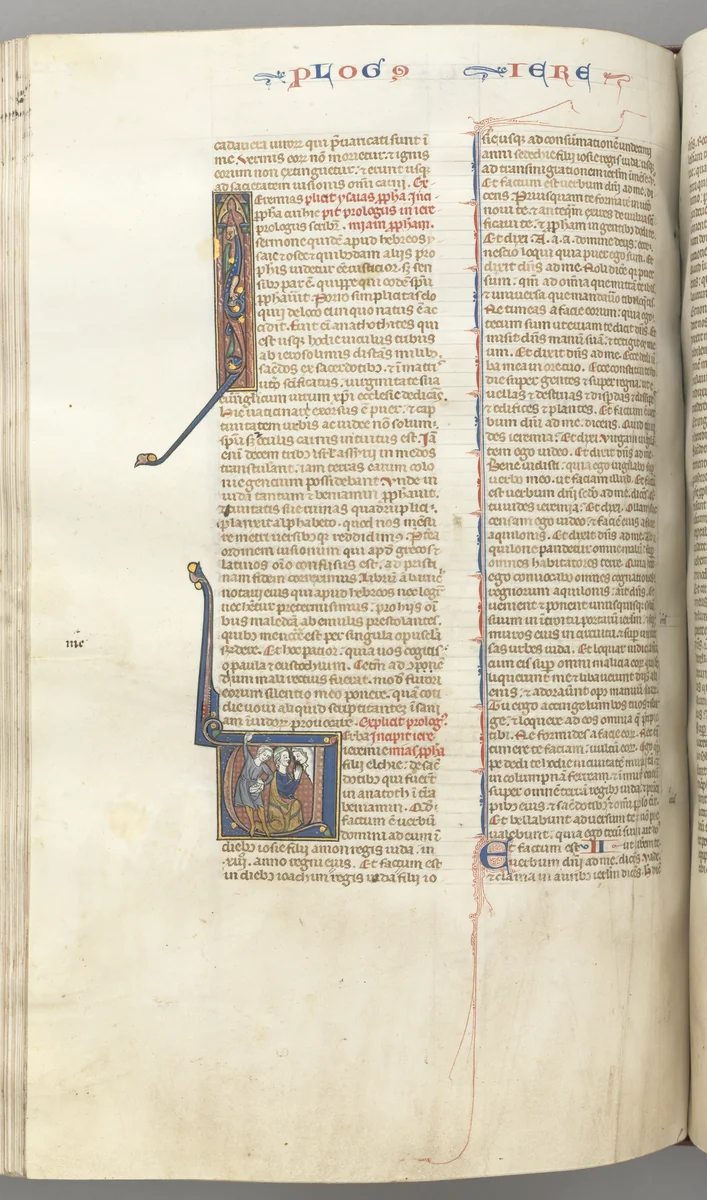 PLOG9 IERE
cadauera uiror qui puaricati sunt i
me. Vermis eor no morietur. et ignis
eorum non extinguetur. et erunt usq
ad sacietatem uisionis omi carni. Ex
Eremias plicit ysaias ppha. Inci
ppha cui hic pit prologus in iere
prologus scribit. miam ppham.
sermone quide apud hebreos y
saie et osee et quibusdam aliis pro
phis uidetur ee rusticior. sz sen
sibus par e. quippe qui eode spu
pphauit. Porro simplicitas elo
quii de loco ei in quo natus e ac
cidit. Fuit ei anathothites qui
est usq hodie uiculus tribus
ab ierosolimis distas milib
sacdos ex sacerdotib. et i matris
utero scificatus. uirginitate sua
euuglicum uirum xpi ecclesie dedicas.
hic uaticinari exorsus e puer. et cap
tiuitatem urbis ac iudee no solum
spu sz oculis carnis intuitus est. Ia
eni decem tribus isrl assyrii in medos
transtulerant. iam terras earum colo
nie gencium possidebant. Vnde in
iuda tantum et beniamin pphauit.
et ciuitatis sue ruinas quadruplici
planxit alphabeto. quod nos mesu
re metri uersibusqr reddidimus. Ptea
ordinem uisionum qui apd grecos et
latinos omo confusus est. ad pristi
nam fidem correximus. Librum aut baruc
notarii eius qui apud hebreos nec legitur
nec habetur pretermisimus. pro his oi
bus maledca ab emulis prestolantes.
quib me necce est per singula opuscula
respondere. Et hoc patior. quia uos cogitis
o paula et eustochium. Ceterum ad compendium
mali rectius fuerat. modum furori
eorum silentio meo ponere. quam coti
die noui aliquid scriptitantem insani
am inuidorum prouocare. Explicit prolog.
Erba Incipit iere
ieremie mias ppha
filii elchie. de sac
dotibus qui fuert
in anatoth i tra
beniamin. Qd
factum e uerbu
domini ad eum i
diebus iosie filii amon regis iuda. in
xiii. anno regni eius. Et factum est
in diebus ioachim regis iuda filii io
me
sie usq ad consumatione undecimi
anni sedechie filii iosie regis iuda. usq
ad transmigratione ierlm i mese
Et factum est uerbum dni ad me. di
cens. Priusquam te formarem in utero
noui te. et anteqm exires de uulua sci
ficaui te. et ppham in gentib dedi te.
Et dixi. A. a. a. domine deus. ecce
nescio loqui quia puer ego sum. Et
dixit dns ad me. Noli dice qr puer
sum. qm ad omia que mitta te ibis.
et uniuersa que mandauo tibi loqris.
Ne timeas a facie eorum. quia ego
tecum sum ut eruam te dicit dns. Et
misit dns manu sua. et tetigit os me
um. Et dixit dns ad me. Ecce dedi u
ba mea in ore tuo. Ecce constitui te ho
die super gentes et super regna. ut e
uellas et destruas et disperdas et dissipes
et edifices et plantes. Et factum e uer
bum dni ad me. dicens. Quid tu ui
des ieremia. Et dixi. Virgam uigi
lantem ego uideo. Et dixit dns ad me.
Bene uidisti. quia ego uigilabo sup
uerbo meo. ut faciam illud. Et factu
est uerbum dni secdo ad me. dices.
tu uides ieremia. Et dixi. Ollam suc
censam ego uideo. et faciem eius a facie
aquilonis. Et dixit dns ad me. Ab a
quilone pandetur omne malum sup
omnes habitatores terre. Quia ecce
ego conuocabo omnes cognationes
regnorum aquilonis. ait dns. Et
uenient et ponent unusquisq soliu
suum in introitu portarum ierlm.
muros eius in circuitu. et sup uniuer
sas urbes iuda. Et loquar iudicia
cum eis sup omni malicia eor qui de
liquerunt me et libauerunt diis ali
enis. et adorauunt opus manuum suar.
Tu ergo accinge lumbos tuos et sur
ge. et loquere ad eos omnia q pcipio
tibi. Ne formides a facie eor. nec eni
timere te faciam uultu eor. Ego qip
pe dedi te hodie in ciuitate munita
in columpnam ferream. et i muru
super omnem terra regibus iuda. prin
cipibus eius. et sacdotib et omni plo
Et bellabunt aduersum te. no pre
ualebunt. quia ego tecu sum
Et factum est II
uerbum dni ad me. dices. Vade
et clama in aurib ierlm dices.